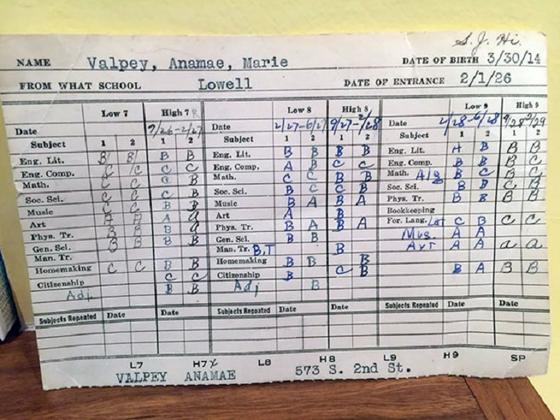 S. J. Hi.
NAME Valpey, Anamae, Marie DATE OF BIRTH 3/30/14
FROM WHAT SCHOOL Lowell DATE OF ENTRANCE 2/1/26
Low 7 High 7 Low 8 High 8 Low 9 High 9
Date 9/26-2/27 Date 2/27-6/27 9/27-2/28 Date 2/28-6/28 9/28 2/29
Subject 1 2 1 2 Subject 1 2 1 2 Subject 1 2 1 2
Eng. Lit. B B B B Eng. Lit. B B B B Eng. Lit. A B B B
Eng. Comp. C C C C Eng. Comp. B A C C Eng. Comp. B B B C
Math. C C C B Math. C C C B Math. Alg B C B C
Soc. Sci. C C B B Soc. Sci. B C B B Soc. Sci. B B C B
Music Music B A B A Phys. Tr. B B B B
Art A Art A B Bookkeeping
Phys. Tr. B B B A Phys. Tr. B A B A For. Lang. Lat C B C C
Gen. Sci. B B B B Gen. Sci. B B Mus A A
Man. Tr. Man. Tr. B,T B Art A A a a
Homemaking C C B B Homemaking B B B B A B B
Citizenship C C Citizenship B C B
Adj B B Adj B
Subjects Repeated Date Date Subjects Repeated Date Date Subjects Repeated Date Date
L7 H7 L8 H8 L9 H9 SP
VALPEY ANAMAE 573 S. 2nd St.